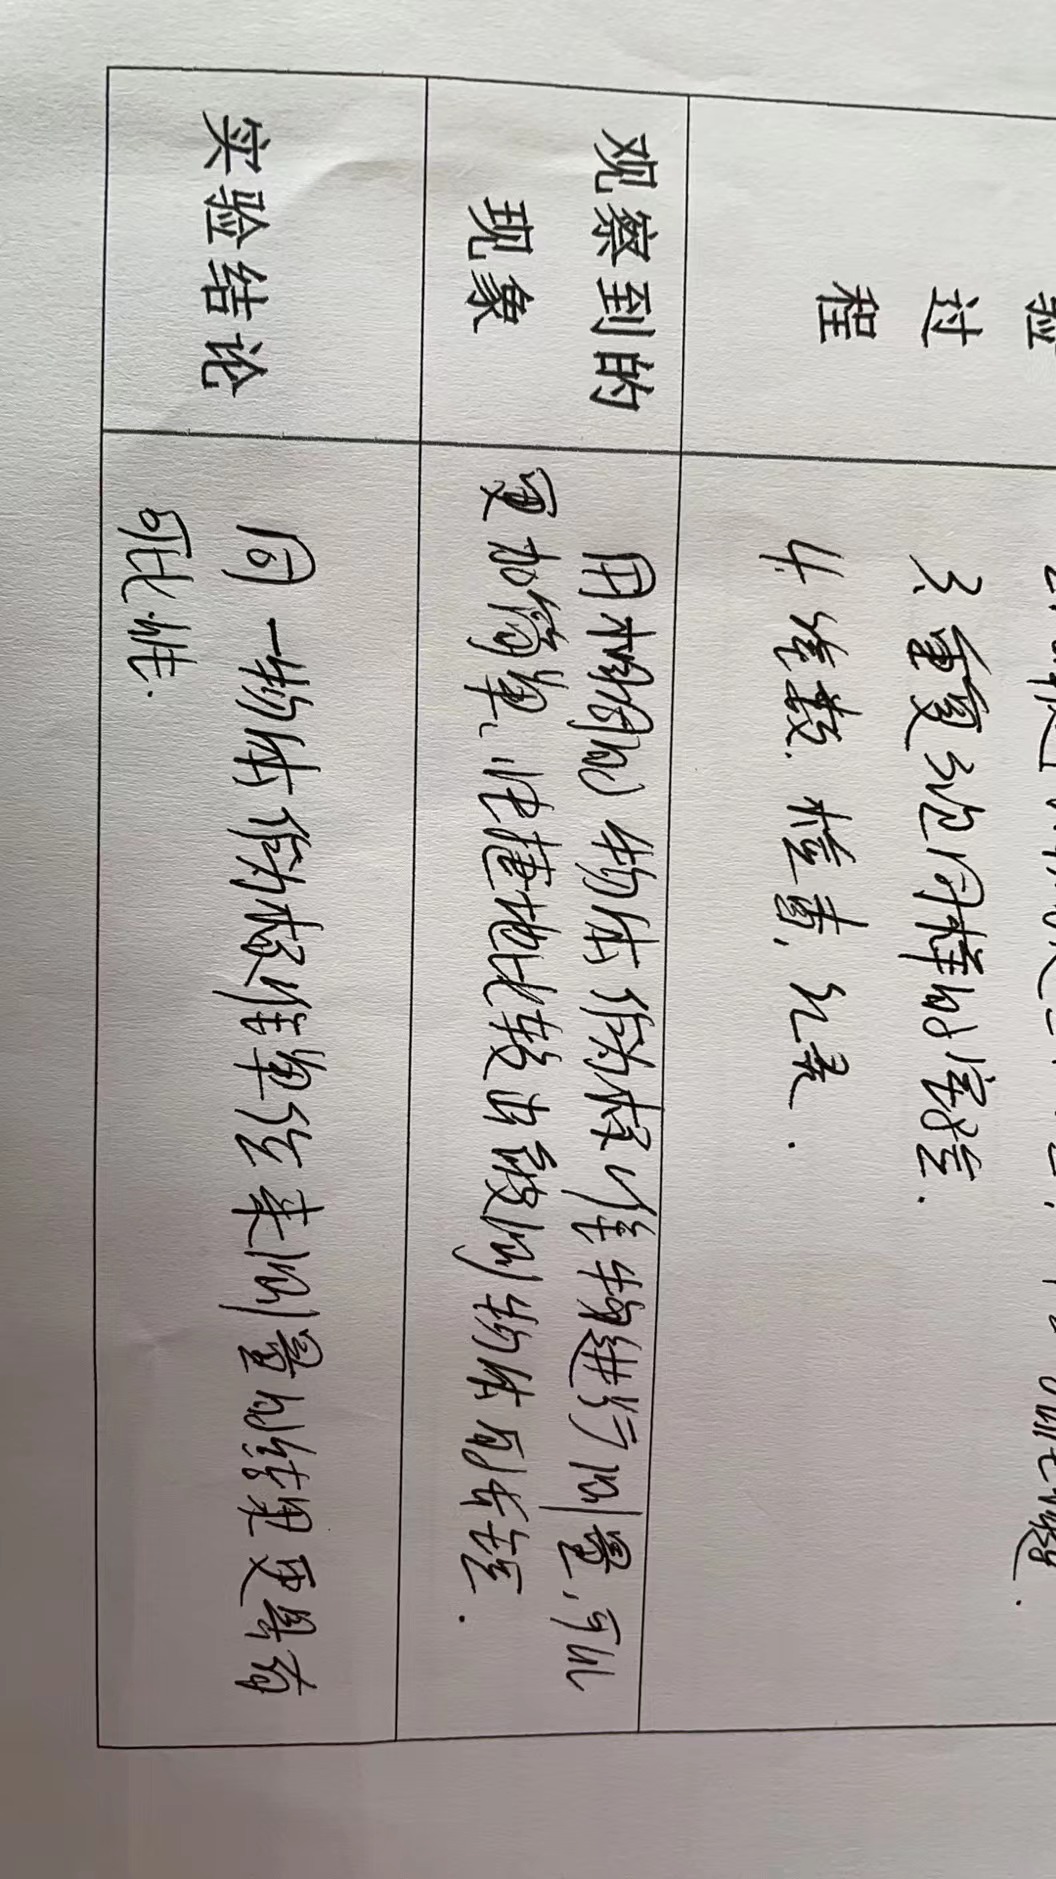 验
过
程
3. 重复3次同样的实验.
4. 读数. 检查. 记录.
观察到的
现象
用相同的物体作为标准物进行测量,可以
更加简单、快捷地比较出被测物体的长短.
实验结论
同一物体作为标准单位来测量的结果更具有
可比性.